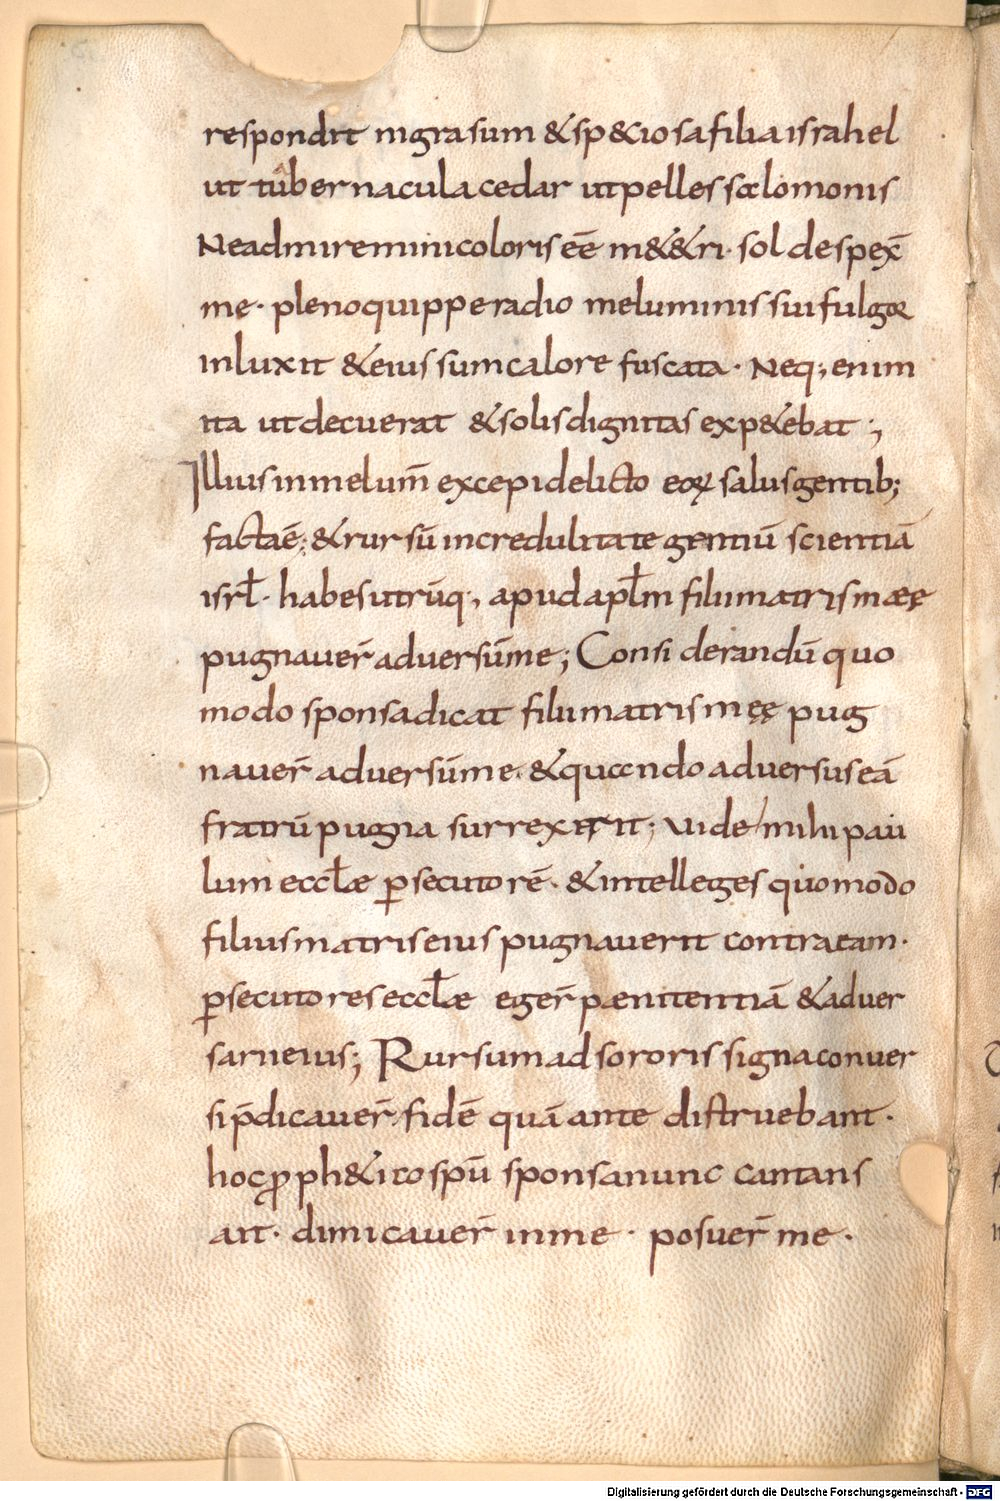 respondit nigra sum & sp&iosa filia israhel
ut tabernacula cedar ut pelles salomonis
Ne admiremini coloris eē m&&ri· sol despex̄
me· pleno quippe radio me luminis sui fulgor
inluxit & eius sum calore fuscata· Neq; enim
ita ut decuerat & solis dignitas exp&ebat ;,
Illius in me lum̄ excepi delicto eoꝝ salus gentib;
facta ē; & rursū incredulitate gentiū scientiā
isrł· habes utrūq·, apud apłm filii matris mæę
pugnauer̄ aduersūme; Considerandū quo
modo sponsa dicat filii matris męę pug
nauer̄ aduersūme· & quando aduersus eā
fratrū pugna surrexerit; uide mihi pau
lum eccłæ ꝑsecutorē· & intelleges quomodo
filius matris eius pugnauerit contra eam·
ꝑsecutores eccłæ eger̄ pænitentiā & aduer
sarii eius; Rursum ad sororis signa conuer
si p̄dicauer̄ fidē quā ante distruebant·
hoc ꝓph&ico spū sponsa nunc cantans
ait· dimicauer̄ in me· posuer̄ me·
Digitalisierung gefördert durch die Deutsche Forschungsgemeinschaft - DFG